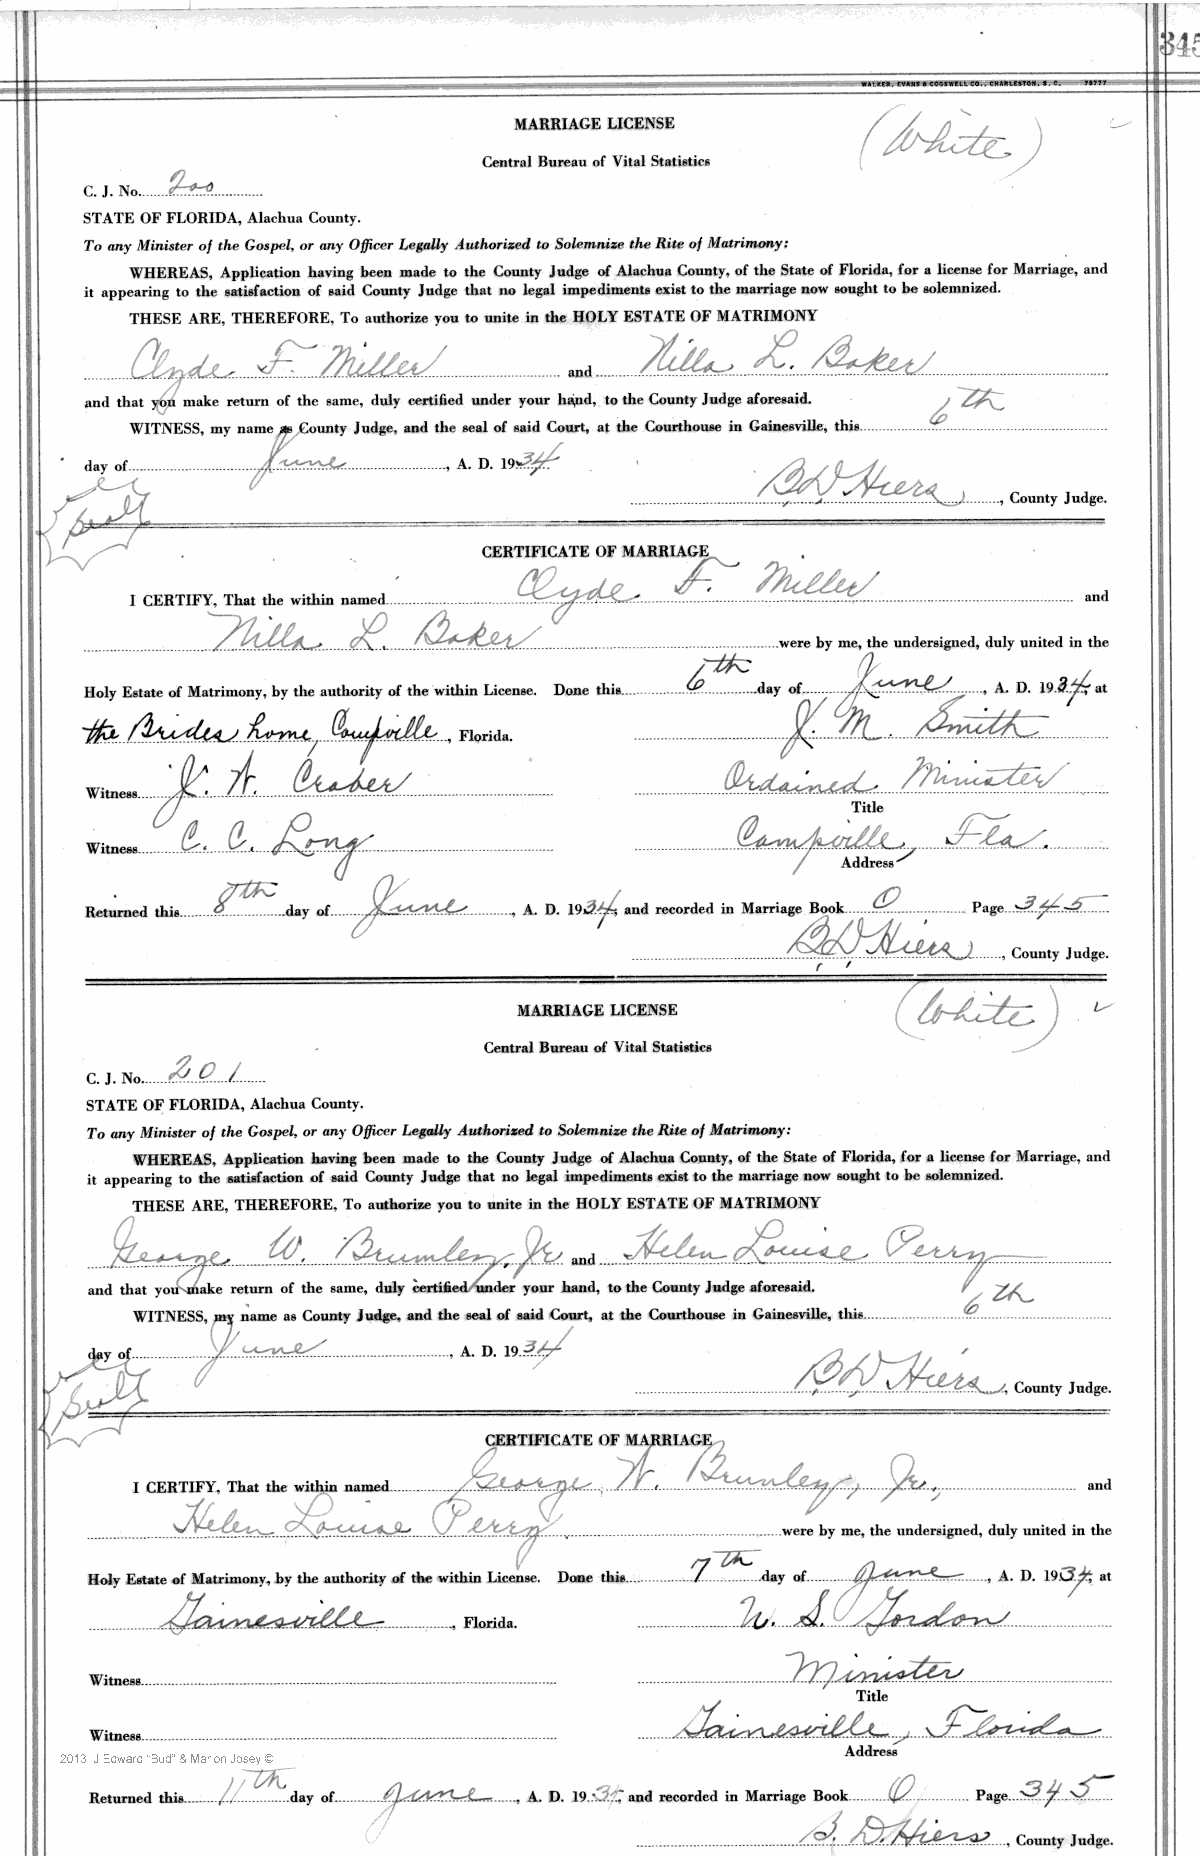 345
WALKER, EVANS & COGSWELL CO., CHARLESTON, S. C. 78777
MARRIAGE LICENSE
(White)
Central Bureau of Vital Statistics
C. J. No. 200
STATE OF FLORIDA, Alachua County.
To any Minister of the Gospel, or any Officer Legally Authorized to Solemnize the Rite of Matrimony:
WHEREAS, Application having been made to the County Judge of Alachua County, of the State of Florida, for a license for Marriage, and
it appearing to the satisfaction of said County Judge that no legal impediments exist to the marriage now sought to be solemnized.
THESE ARE, THEREFORE, To authorize you to unite in the HOLY ESTATE OF MATRIMONY
Clyde F. Miller and Nilla L. Baker
and that you make return of the same, duly certified under your hand, to the County Judge aforesaid.
WITNESS, my name as County Judge, and the seal of said Court, at the Courthouse in Gainesville, this 6th
day of June, A. D. 1934
B. D. Hiers, County Judge.
Seal
CERTIFICATE OF MARRIAGE
I CERTIFY, That the within named Clyde F. Miller and
Nilla L. Baker were by me, the undersigned, duly united in the
Holy Estate of Matrimony, by the authority of the within License. Done this 6th day of June, A. D. 1934, at
the Brides home, Campville, Florida. J. M. Smith
Witness J. W. Craber Ordained Minister
Title
Witness C. C. Long Campville, Fla.
Address
Returned this 8th day of June, A. D. 1934, and recorded in Marriage Book O Page 345
B. D. Hiers, County Judge.
MARRIAGE LICENSE
(White)
Central Bureau of Vital Statistics
C. J. No. 201
STATE OF FLORIDA, Alachua County.
To any Minister of the Gospel, or any Officer Legally Authorized to Solemnize the Rite of Matrimony:
WHEREAS, Application having been made to the County Judge of Alachua County, of the State of Florida, for a license for Marriage, and
it appearing to the satisfaction of said County Judge that no legal impediments exist to the marriage now sought to be solemnized.
THESE ARE, THEREFORE, To authorize you to unite in the HOLY ESTATE OF MATRIMONY
George W. Brumley, Jr and Helen Louise Perry
and that you make return of the same, duly certified under your hand, to the County Judge aforesaid.
WITNESS, my name as County Judge, and the seal of said Court, at the Courthouse in Gainesville, this 6th
day of June, A. D. 1934
B. D. Hiers, County Judge.
Seal
CERTIFICATE OF MARRIAGE
I CERTIFY, That the within named George W. Brumley, Jr., and
Helen Louise Perry were by me, the undersigned, duly united in the
Holy Estate of Matrimony, by the authority of the within License. Done this 7th day of June, A. D. 1934, at
Gainesville, Florida. U. S. Gordon
Witness Minister
Title
Witness Gainesville, Florida
Address
2013 J Edward "Bud" & Marion Josey ©
Returned this 11th day of June, A. D. 1934, and recorded in Marriage Book O Page 345
B. D. Hiers, County Judge.